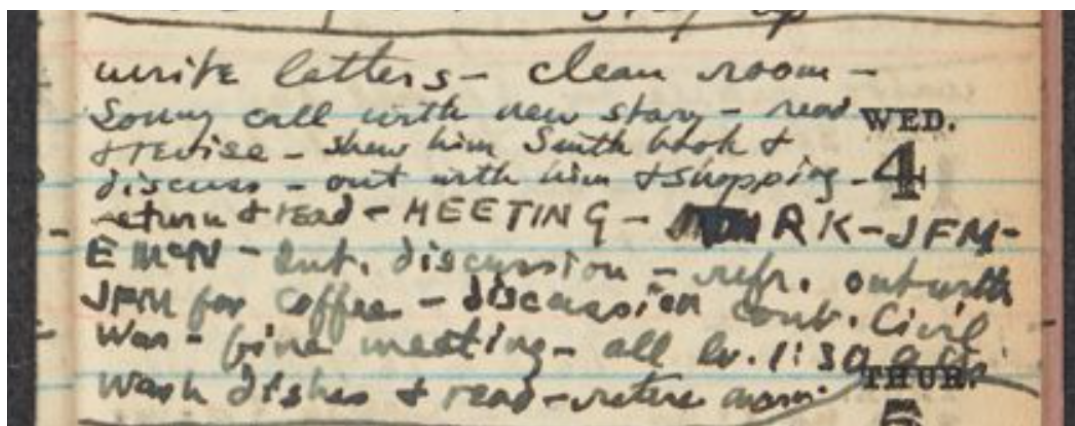 write letters - clean room -
Sonny call with new story - read
WED.
& revise - show him Smith book &
4
discuss - out with him & shopping -
return & read - MEETING - RK-JFM-
E McN - int. discussion - refr. out with
JFM for coffee - discussion cont. Civil
War - fine meeting - all lv. 1:30
THUR.
wash dishes & read - retire
5